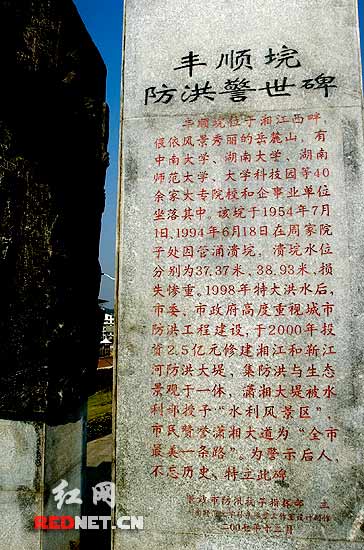 丰顺垸
防洪警世碑
丰顺垸位于湘江西畔,
偎依风景秀丽的岳麓山,有
中南大学、湖南大学、湖南
师范大学、大学科技园等40
余家大专院校和企事业单位
坐落其中。该垸于1954年7月
1日、1994年6月18日在周家院
子处因管涌溃垸,溃垸水位
分别为37.37米、38.93米,损
失惨重。1998年特大洪水后,
市委、市政府高度重视城市
防洪工程建设,于2000年投
资2.5亿元修建湘江和靳江
河防洪大堤、集防洪与生态
景观于一体,潇湘大堤被水
利部授予“水利风景区”,
市民赞誉潇湘大道为“全市
最美一条路”。为警示后人,
不忘历史、特立此碑。
长沙市防汛抗旱指挥部 立
红网
REDNET.CN